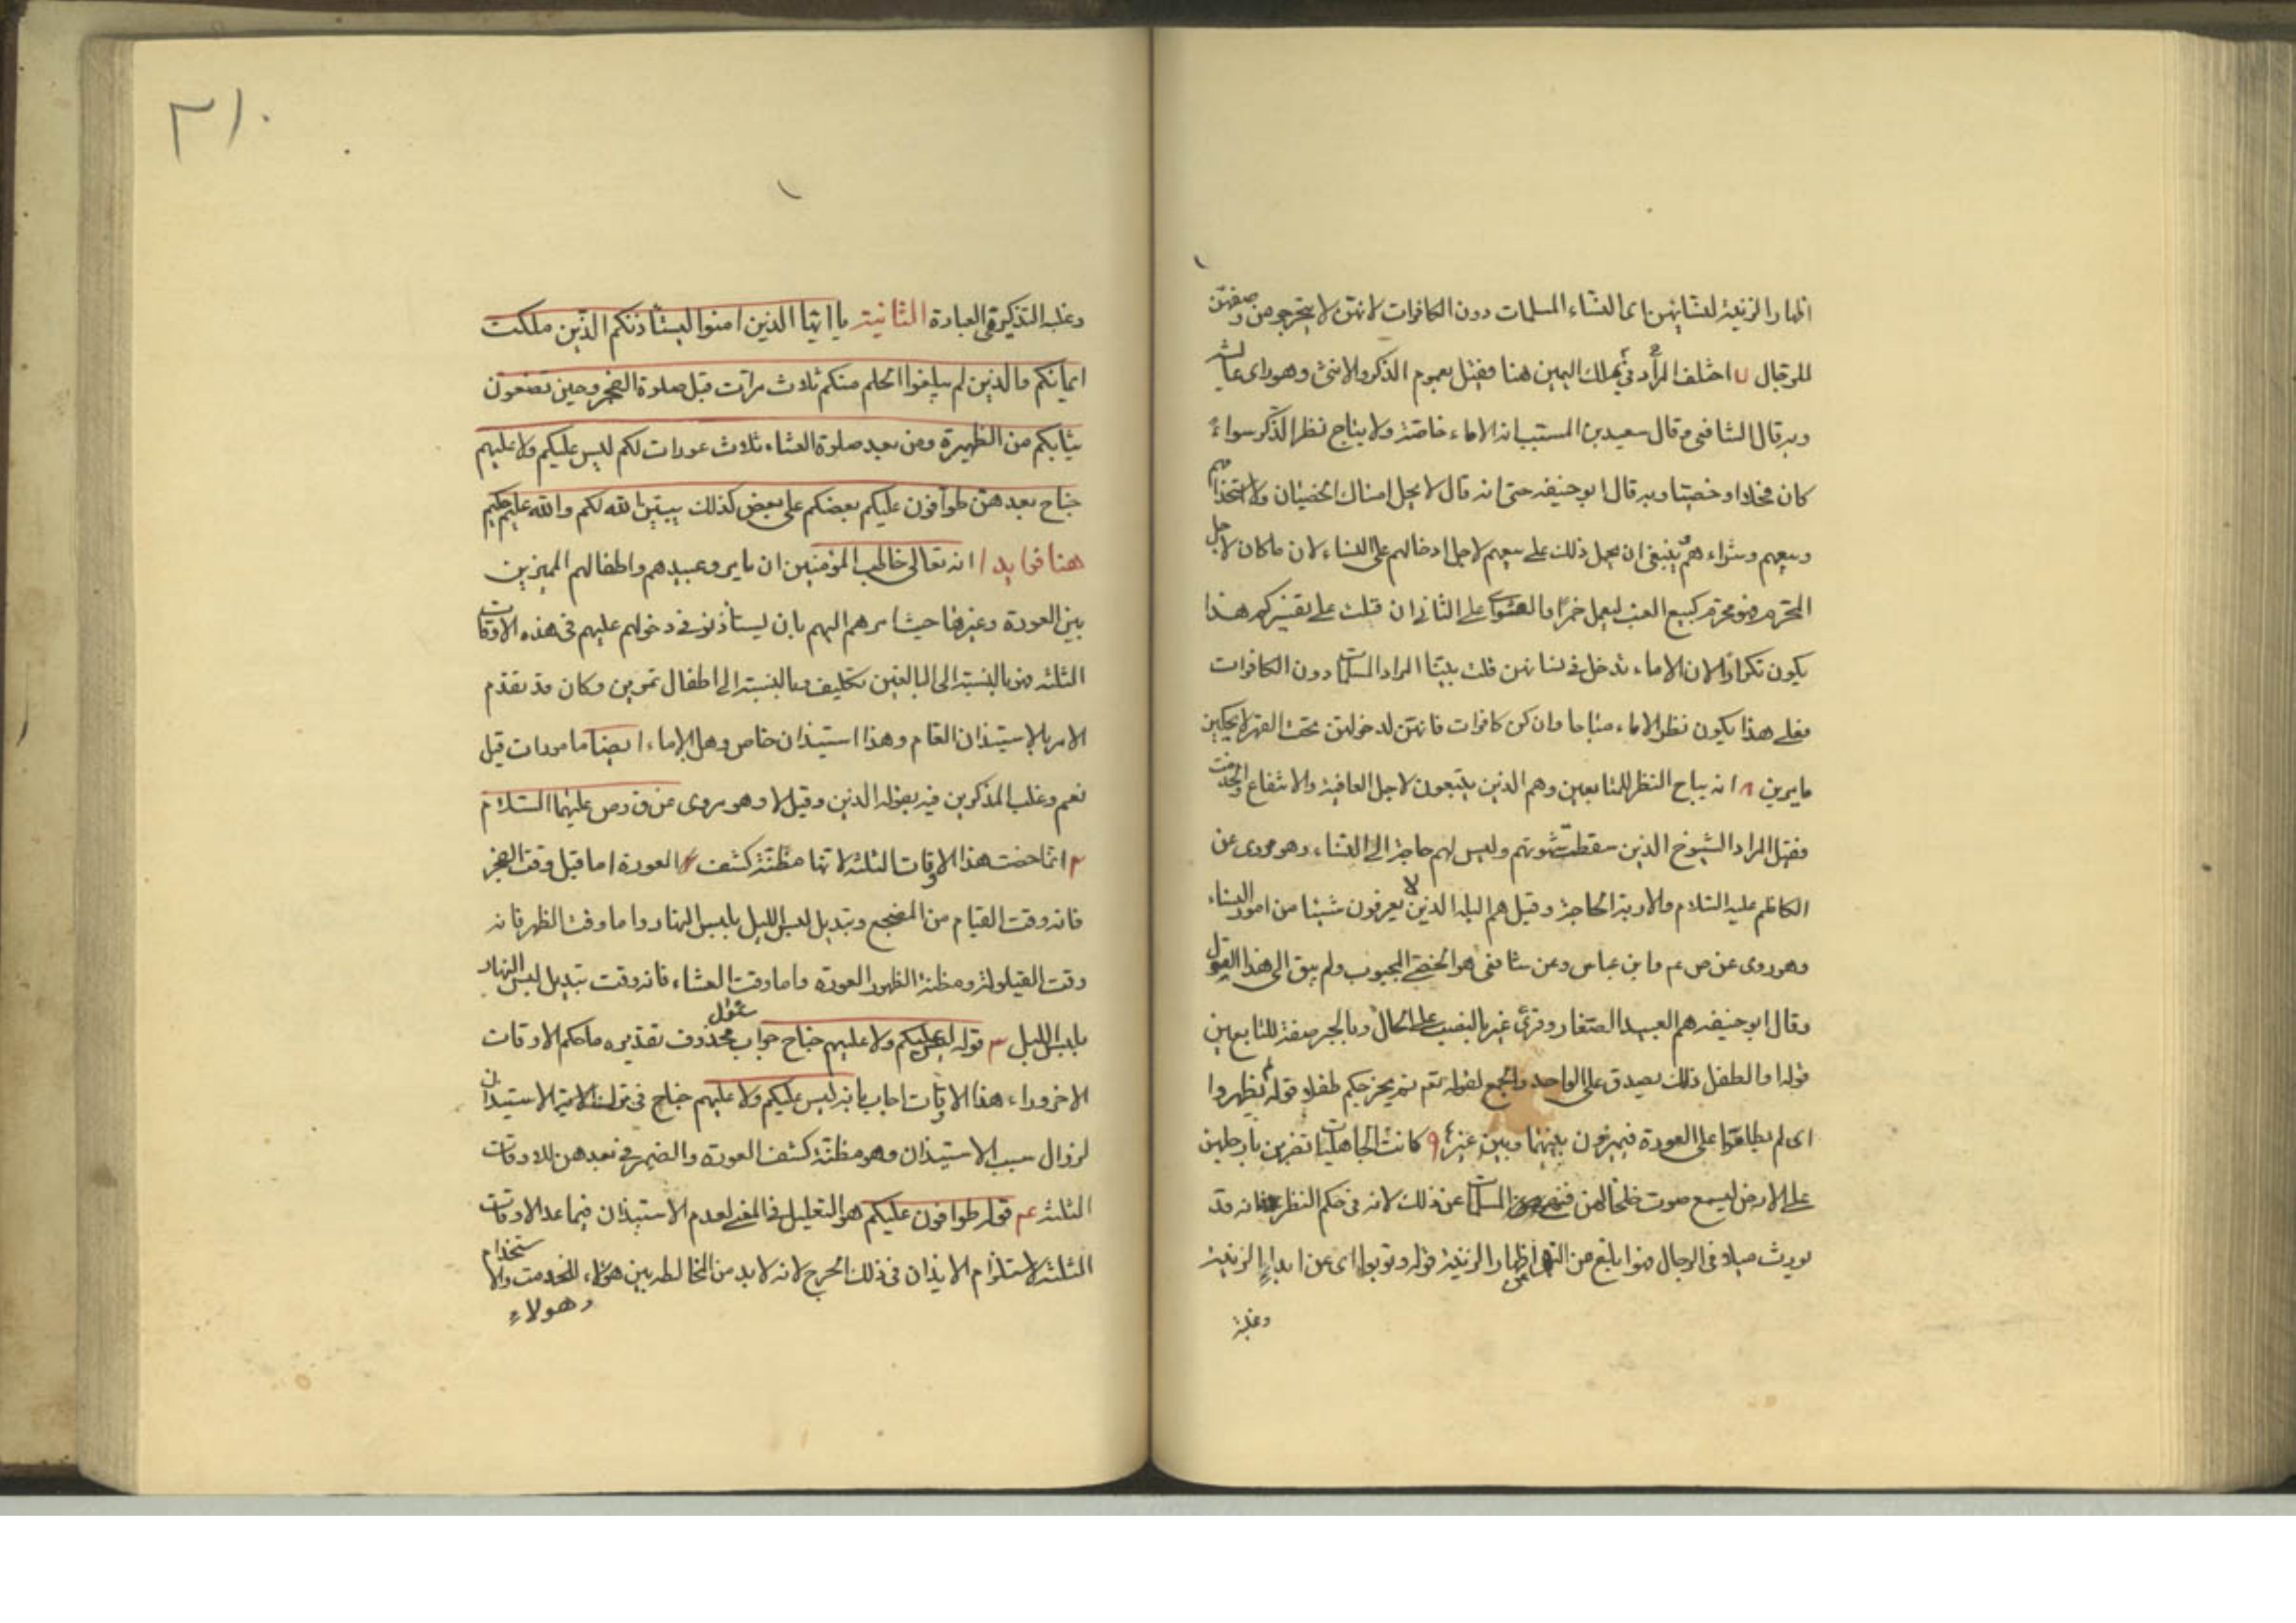 اظهار الزينة لنسائهن اى النساء المسلمات دون الكافرات لانهن لا يتحرجن من وصفهن
للرجال ل اختلف المراد فى بملك اليمين هنا فقيل بعموم الذكر والانثى وهو راى عايشه
وبه قال الشافعى وقال سعيد بن المسيب انه الاماء خاصة ولا يباح نظر الذكر سواء
كان فحلا او خصيا وبه قال ابو حنيفه حتى انه قال لا يحل امساك الخصيان ولا استخدامهم
وبيعهم وشراءهم ينبغى ان يحمل ذلك على بيعهم لاجل ادخالهم على النساء لان ما كان لاجل
المحترم فهو محرم كبيع العنب ليعمل خمرا والفتوى على الثانى ان قلت على تفسيركم هذا
يكون تكرارا لان الاماء تدخل فى نسائهن قلت بينا المراد المسلمات دون الكافرات
فعلى هذا يكون نظر الاماء مباحا وان كن كافرات فانهن لدخولهن تحت القهر لا يحكين
ما يرين ٨ انه يباح النظر للتابعين وهم الذين يتبعون لاجل العافية والانتفاع والخدمت
فقيل المراد الشيوخ الذين سقطت شهوتهم وليس لهم حاجة الى النساء وهو مروى عن
الكاظم عليه السلام والاربة الحاجة وقيل هم البله الذين لا يعرفون شيئا من امور النساء
وهو روى عن ص عم وابن عباس وعن شافعى هو الخصى المجبوب ولم يبق الى هذا القول
وقال ابو حنيفه هم العبيد الصغار وقرئ غير بالنصب على الحال وبالجر صفة للتابعين
قوله او الطفل ذلك يصدق على الواحد والجمع لقوله تعم ثم يخرجكم طفلا وقوله لم يظهروا
اى لم يطلعوا على العورة فيميزون بينها وبين غيرها ٩ كانت الجاهليات تضربن بارجلهن
على الارض ليسمع صوت خلخالهن فنهى المسلمات عن ذلك لانه فى حكم النظر فانه قد
يورث ميلا فى الرجال فهو ابلغ من النهى عن اظهار الزينة قوله وتوبوا اى عن ابداء الزينة
وغلبه
٣١٠
وغلبه التذكير فى العبارة الثانية يا ايها الذين امنوا ليستأذنكم الذين ملكت
ايمانكم والذين لم يبلغوا الحلم منكم ثلاث مرات قبل صلوة الفجر وحين تضعون
ثيابكم من الظهيرة ومن بعد صلوة العشاء ثلاث عورات لكم ليس عليكم ولا عليهم
جناح بعدهن طوافون عليكم بعضكم على بعض كذلك يبين الله لكم والله عليم حكيم
هنا فوايد ا انه تعالى خاطب المؤمنين ان يامروعبيدهم واطفالهم المميزين
بين العورة وغيرها حيث امرهم اليهم بان ليستأذنو فى دخولهم عليهم فى هذه الاوقات
الثلثه فهو بالنسبة الى البالغين تكليف وبالنسبة الى اطفال تمرين وكان قد تقدم
الامر بالاستيذان العام وهذا استيذان خاص وهل الاماء ايضا مامورات قيل
نعم وغلب المذكرين فيه بقوله الذين وقيل لا وهو مروى عن ق وص عليهما السلام
٢ انما خصت هذا الاوقات الثلثه لانها مظنة كشف العورة اما قبل وقت الفجر
فانه وقت القيام من المضجع وتبديل لبس الليل بلبس النهار واما وقت الظهر فانه
وقت القيلولة ومظنة الظهور العورة واما وقت العشاء فانه وقت تبديل لبس النهار
بلبس الليل ٣ قوله ليس عليكم ولا عليهم جناح جواب سئول محذوف تقديره ما حكم الاوقات
الاخر وراء هذا الاوقات اجاب بانه ليس عليكم ولا عليهم جناح فى ترك الامر بالاستيذان
لزوال سبب الاستيذان وهو مظنة كشف العورة والضمير فى بعدهن للاوقات
الثلثه عم قوله طوافون عليكم هو التعليل فى المعنى لعدم الاستيذان فيما عد الاوقات
الثلثه لاستلزام الايذان فى ذلك الحرج لانه لا بد من المخالطه بين هؤلاء للخدمت والاستخدام
وهولاء